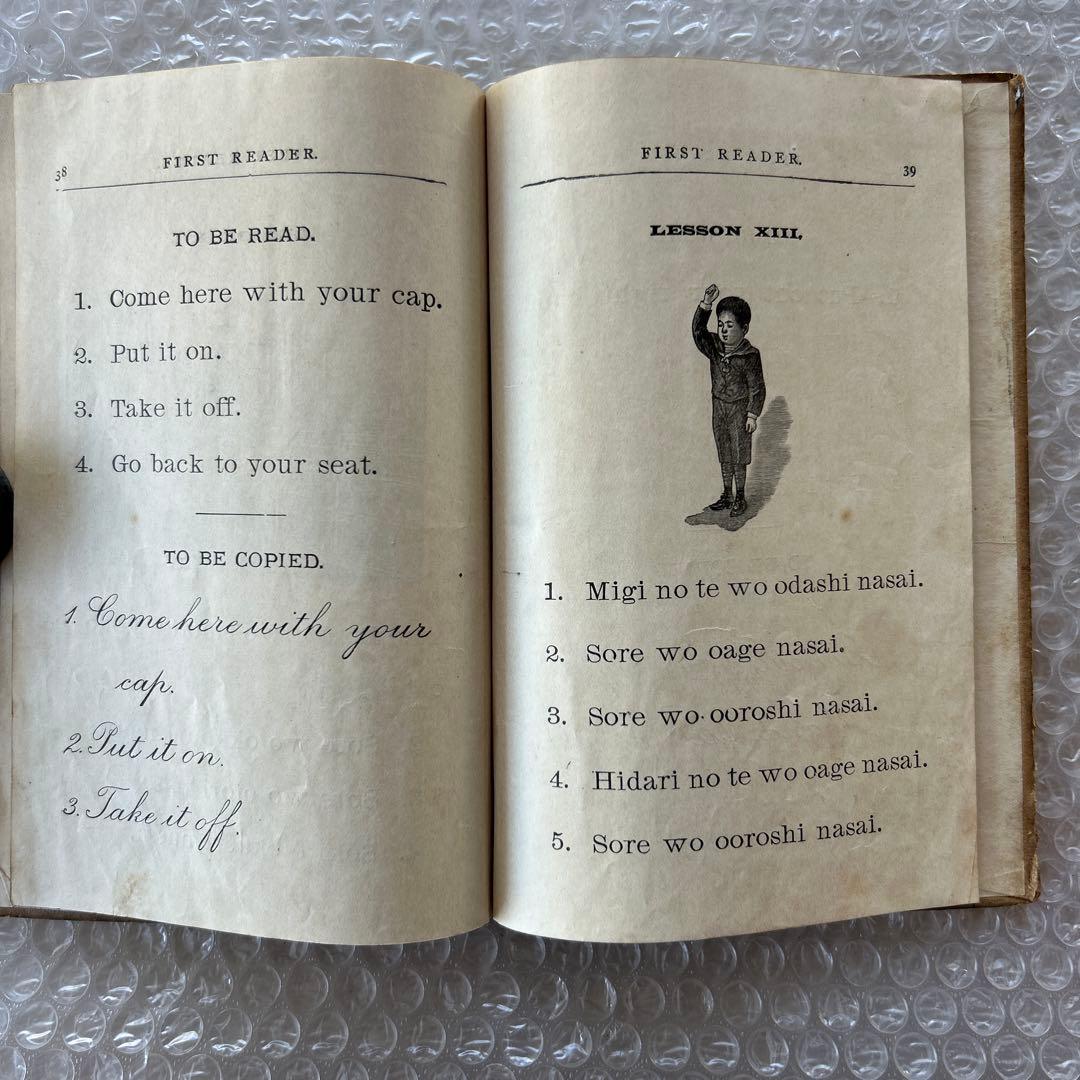 38
FIRST READER.
TO BE READ.
1. Come here with your cap.
2. Put it on.
3. Take it off.
4. Go back to your seat.
TO BE COPIED.
1. Come here with your
cap.
2. Put it on.
3. Take it off.
FIRST READER.
39
LESSON XIII.
1. Migi no te wo odashi nasai.
2. Sore wo oage nasai.
3. Sore wo ooroshi nasai.
4. Hidari no te wo oage nasai.
5. Sore wo ooroshi nasai.